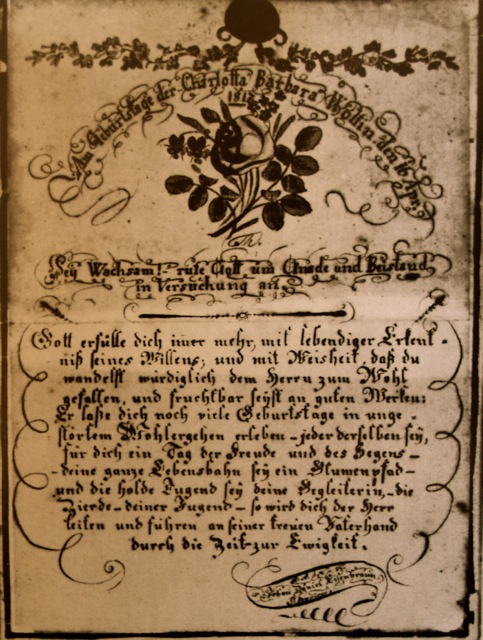 Am Geburtstage der Charlotta Barbara Wollin den 16
1815
Sey Wachsam! – rufe Gott um Gnade und Beistand
in Versuchung an.
Gott erfülle dich imer mehr, mit lebendiger Erkent-
niß seines Willens; und mit Weisheit, daß du
wandelst würdiglich dem Herrn zum Wohl
gefallen, und fruchtbar seyst an guten Werken;
Er laße dich noch viele Geburtstage in unge-
störtem Wohlergehen erleben – jeder derselben sey,
für dich ein Tag der Freude und des Segens –
– deine ganze Lebensbahn sey ein Blumenpfad –
und die holde Tugend sey deine Begleiterin, – die
Zierde – deiner Jugend – so wird dich der Herr
leiten und führen an seiner treuen Vaterhand
durch die Zeit – zur Ewigkeit.